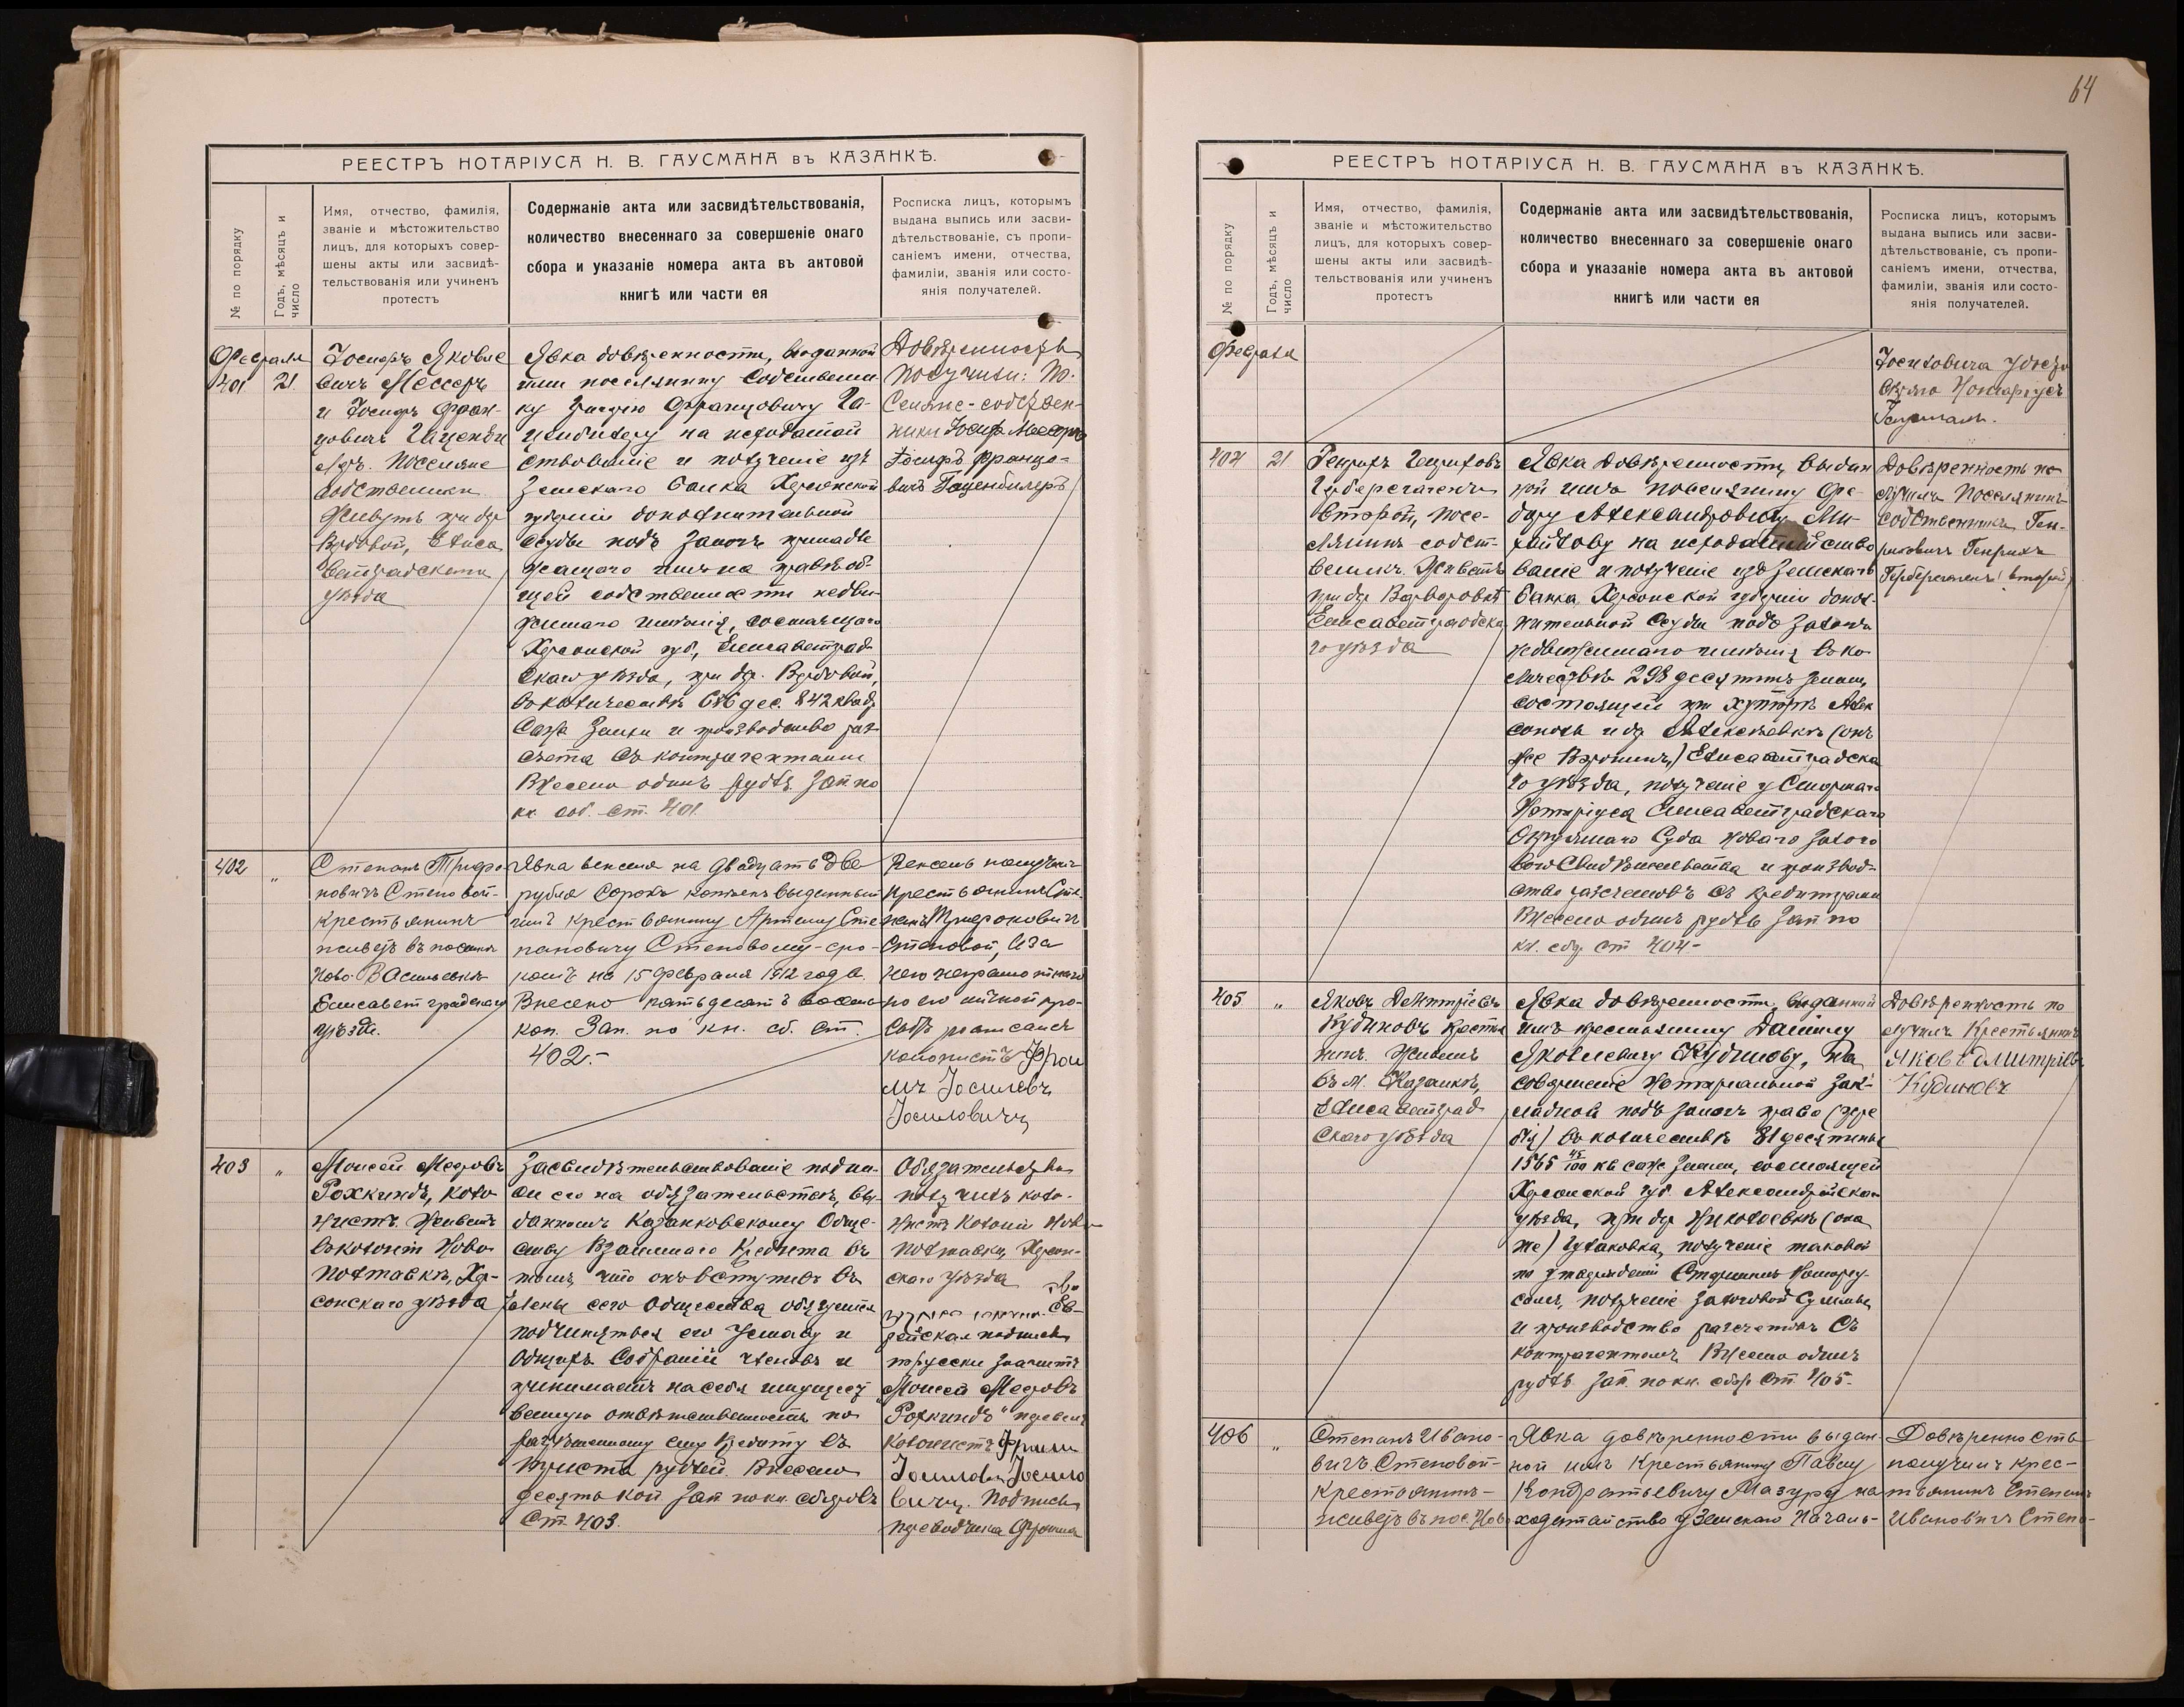 РЕЕСТРЪ НОТАРІУСА Н. В. ГАУСМАНА въ КАЗАНКѢ.
№ по порядку
Годъ, мѣсяцъ и
число
Имя, отчество, фамилія,
званіе и мѣстожительство
лицъ, для которыхъ совер-
шены акты или засвидѣ-
тельствованія или учиненъ
протестъ
Содержаніе акта или засвидѣтельствованія,
количество внесеннаго за совершеніе онаго
сбора и указаніе номера акта въ актовой
книгѣ или части ея
Росписка лицъ, которымъ
выдана выпись или засви-
дѣтельствованіе, съ пропи-
саніемъ имени, отчества,
фамиліи, званія или состо-
янія получателей.
Февраля
401 21
Іосифъ Яковле
вичъ Мессеръ
и Іосифъ Фран-
цовичъ
Поселяне
собственники
Живутъ при др
Вербовой, Елиса
ветградскаго
уѣзда
Явка довѣренности, выданной
ими поселянину собственни
ку Францовичу Га-
на исходатай
ствованіе и полученіе изъ
Земскаго Банка Херсонской
губерніи дополнительной
ссуды подъ залогъ принадле
жащаго имъ на правѣ об
щей собственности недви
жимаго имѣнія, состоящаго
Херсонской губ, Елисаветград
скаго уѣзда, при др. Вербовой,
въ количествѣ дес. 842 квадр
саж земли и производство раз
счета съ контрагентами
Внесено одинъ рубль Зап. по
кн. соб. ст. 401.
Довѣренность
получили: По-
селяне-собствен-
ники Іосифъ Мессеръ
Іосифъ Францо-
вичъ Гаценбилеръ
402 „
Степанъ Трифо
новичъ Степовой-
крестьянинъ
живетъ въ поселкѣ
Ново-Васильевкѣ
Елисаветградскаго
уѣзда.
Явка векселя на двадцать две
рубля сорокъ копѣекъ выданный
имъ крестьянину Артему Сте
пановичу Степовому-сро-
комъ на 15 февраля 1912 года
Внесено пятьдесятъ восемь
коп. Зап. по кн. сб. ст.
402.-
Вексель получилъ
крестьянинъ Сте-
панъ Трифоновичъ
Степовой, а за
него неграмотнаго
по его личной про-
сьбѣ росписался
колонистъ Фрои
мъ Іосилевъ
Іосиловичъ
403 „
Моисей Мееровъ
Рохкиндъ, коло
нистъ Живетъ
въ колоніи Ново
полтавкѣ, Хер-
сонскаго уѣзда
Засвидѣтельствованіе подпи-
си его на обязательствѣ, вы-
данномъ Казанковскому Обще-
ству Взаимнаго Кредита въ
томъ, что онъ вступивъ въ
члены сего Общества обязуется
подчиняться его Уставу и
Общихъ Собраній членовъ и
принимаетъ на себя имущест
венную отвѣтственность по
разрѣшенному ему кредиту въ
триста рублей. Внесено
десять коп Зап по кн. сборовъ
Ст. 403.
Обязательство
получилъ коло-
нистъ колоніи Ново
полтавки, Херсон-
скаго уѣзда
Ев-
рейская подпись
по русски значитъ
„Моисей Меровъ
Рохкиндъ" перевелъ
колонистъ Фроим
Іосилевъ Іосило
вичъ. Подпись
переводчика Фроима
64
РЕЕСТРЪ НОТАРІУСА Н. В. ГАУСМАНА въ КАЗАНКѢ.
№ по порядку
Годъ, мѣсяцъ и
число
Имя, отчество, фамилія,
званіе и мѣстожительство
лицъ, для которыхъ совер-
шены акты или засвидѣ-
тельствованія или учиненъ
протестъ
Содержаніе акта или засвидѣтельствованія,
количество внесеннаго за совершеніе онаго
сбора и указаніе номера акта въ актовой
книгѣ или части ея
Росписка лицъ, которымъ
выдана выпись или засви-
дѣтельствованіе, съ пропи-
саніемъ имени, отчества,
фамиліи, званія или состо-
янія получателей.
Февраля
Іосиловича удосто
вѣряю Нотаріусъ
Гаусманъ.
404 21
Генрихъ Генриховъ
второй, посе-
лянинъ-собст-
венникъ. Живетъ
при др Варваровкѣ
Елисаветградска
го уѣзда
Явка довѣренности, выдан
ной имъ поселянину Фе-
дору Александровичу Ми-
на исходатайство
ваніе и полученіе изъ Земскаго
Банка Херсонской губерніи допол-
нительной ссуды подъ залогъ
недвижимаго имѣнія въ ко
личествѣ 298 десятинъ земли,
состоящей при хуторѣ
и др Алексѣевкѣ (онъ
же) Елисаветградска
го уѣзда, полученіе у Старшаго
Нотаріуса Елисаветградскаго
Окружнаго Суда новаго залого
ваго свидѣтельства и производ-
ство разсчетовъ съ кредиторами
Внесено одинъ рубль Зап по
кн. сбор. ст 404-
Довѣренность по
лучилъ Поселянинъ
собственникъ Ген-
риховичъ Генрихъ
второй
405 „
Яковъ Дмитріевъ
Кудиновъ Крестья
нинъ. Живетъ
въ м. Казанкѣ,
Елисаветград
скаго уѣзда
Явка довѣренности, выданной
имъ крестьянину Даніилу
Яковлевичу Кудинову, на
совершеніе нотаріальной зак-
ладной подъ залогъ право (жре
бія) въ количествѣ 81 десятины
1565 45/100 кв саж земли, состоящей
Херсонской губ. Александрійскаго
уѣзда, при др Николаевкѣ (она
же) Гулаковка, полученіе таковой
по утвержденіи Старшимъ Нотаріу-
сомъ, полученіе залоговой суммы
и производство разсчетовъ съ
контрагентомъ. Внесено одинъ
рубль Зап. по кн. сбор. ст. 405-
Довѣренность по
лучилъ Крестьянинъ
Яковъ Дмитріевъ
Кудиновъ
406 „
Степанъ Ивано-
вичъ Степовой-
крестьянинъ-
живетъ въ пос. Ново
Явка довѣренности выдан-
ной имъ крестьянину Павлу
Кондратьевичу Мазуру на
ходатайство у Земскаго Началь-
Довѣренность
получилъ крес-
тьянинъ Степанъ
Ивановичъ Степо-